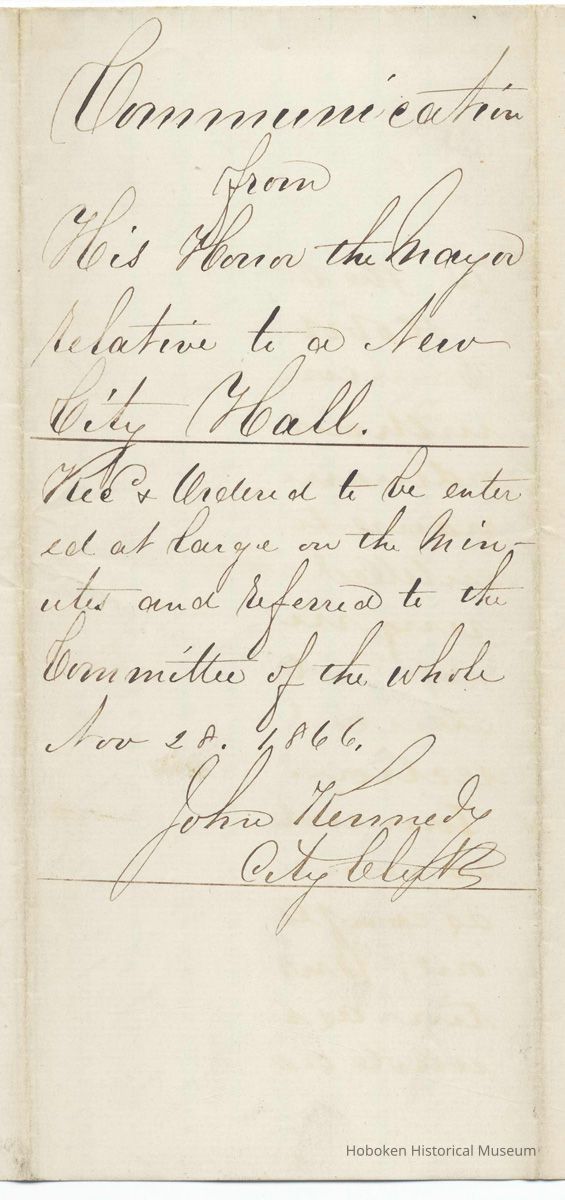 Communication
from
His Honor the Mayor
relative to a New
City Hall.
Rec'd & Ordered to be enter
ed at large on the Min-
utes and referred to the
Committee of the whole
Nov 28. 1866.
John Kennedy
City Clerk
Hoboken Historical Museum